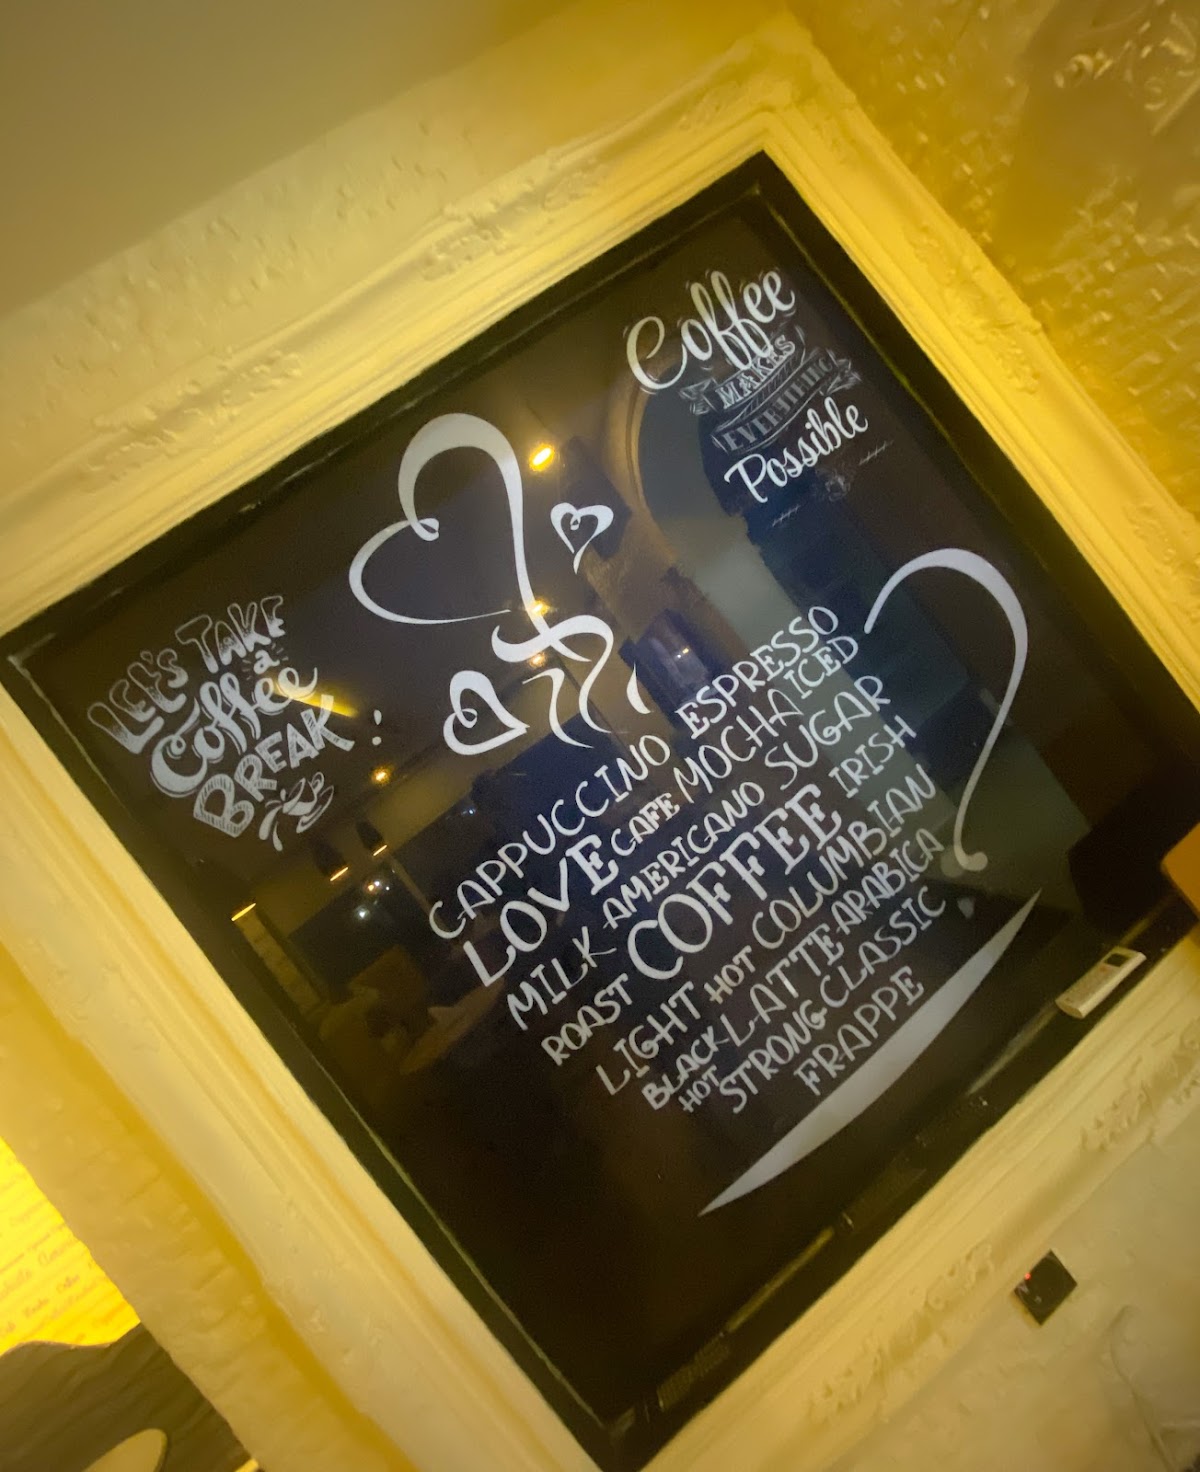 Coffee
MAKES
EVERYTHING
Possible
LEL'S TAKE
a
Coffee
BREAK
CAPPUCCINO ESPRESSO
LOVE CAFE MOCHA ICED
MILK AMERICANO SUGAR
ROAST COFFEE IRISH
LIGHT HOT COLUMBIAN
BLACK LATTE ARABICA
HOT STRONG CLASSIC
FRAPPE